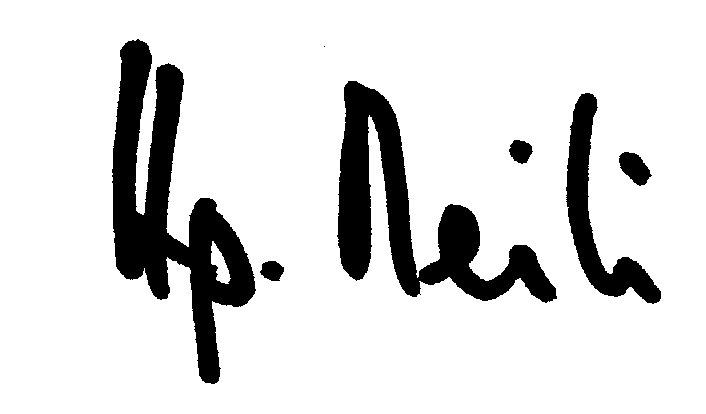 Hp. Meili